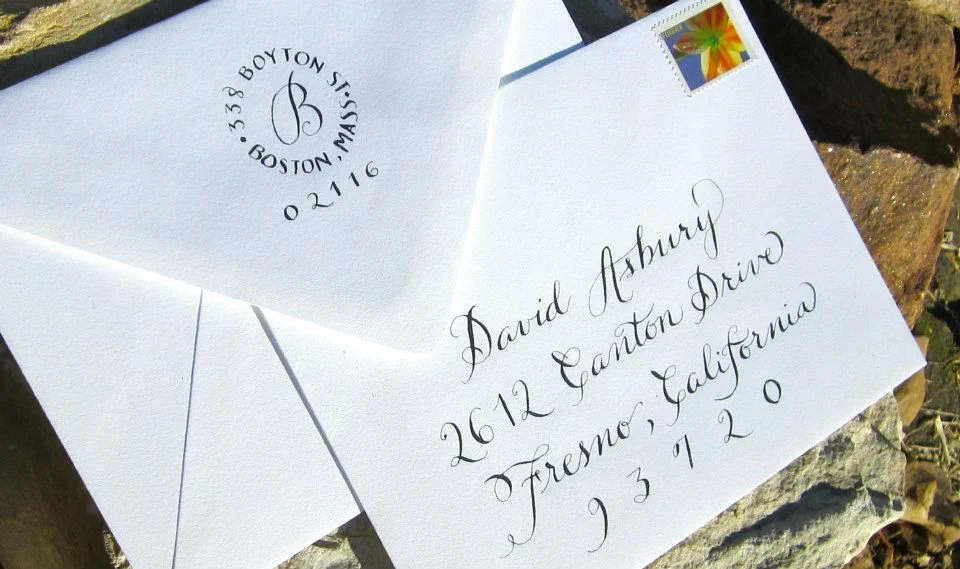 338 BOYTON ST • BOSTON, MASS •
B
02116
David Asbury
2612 Canton Drive
Fresno, California
93720